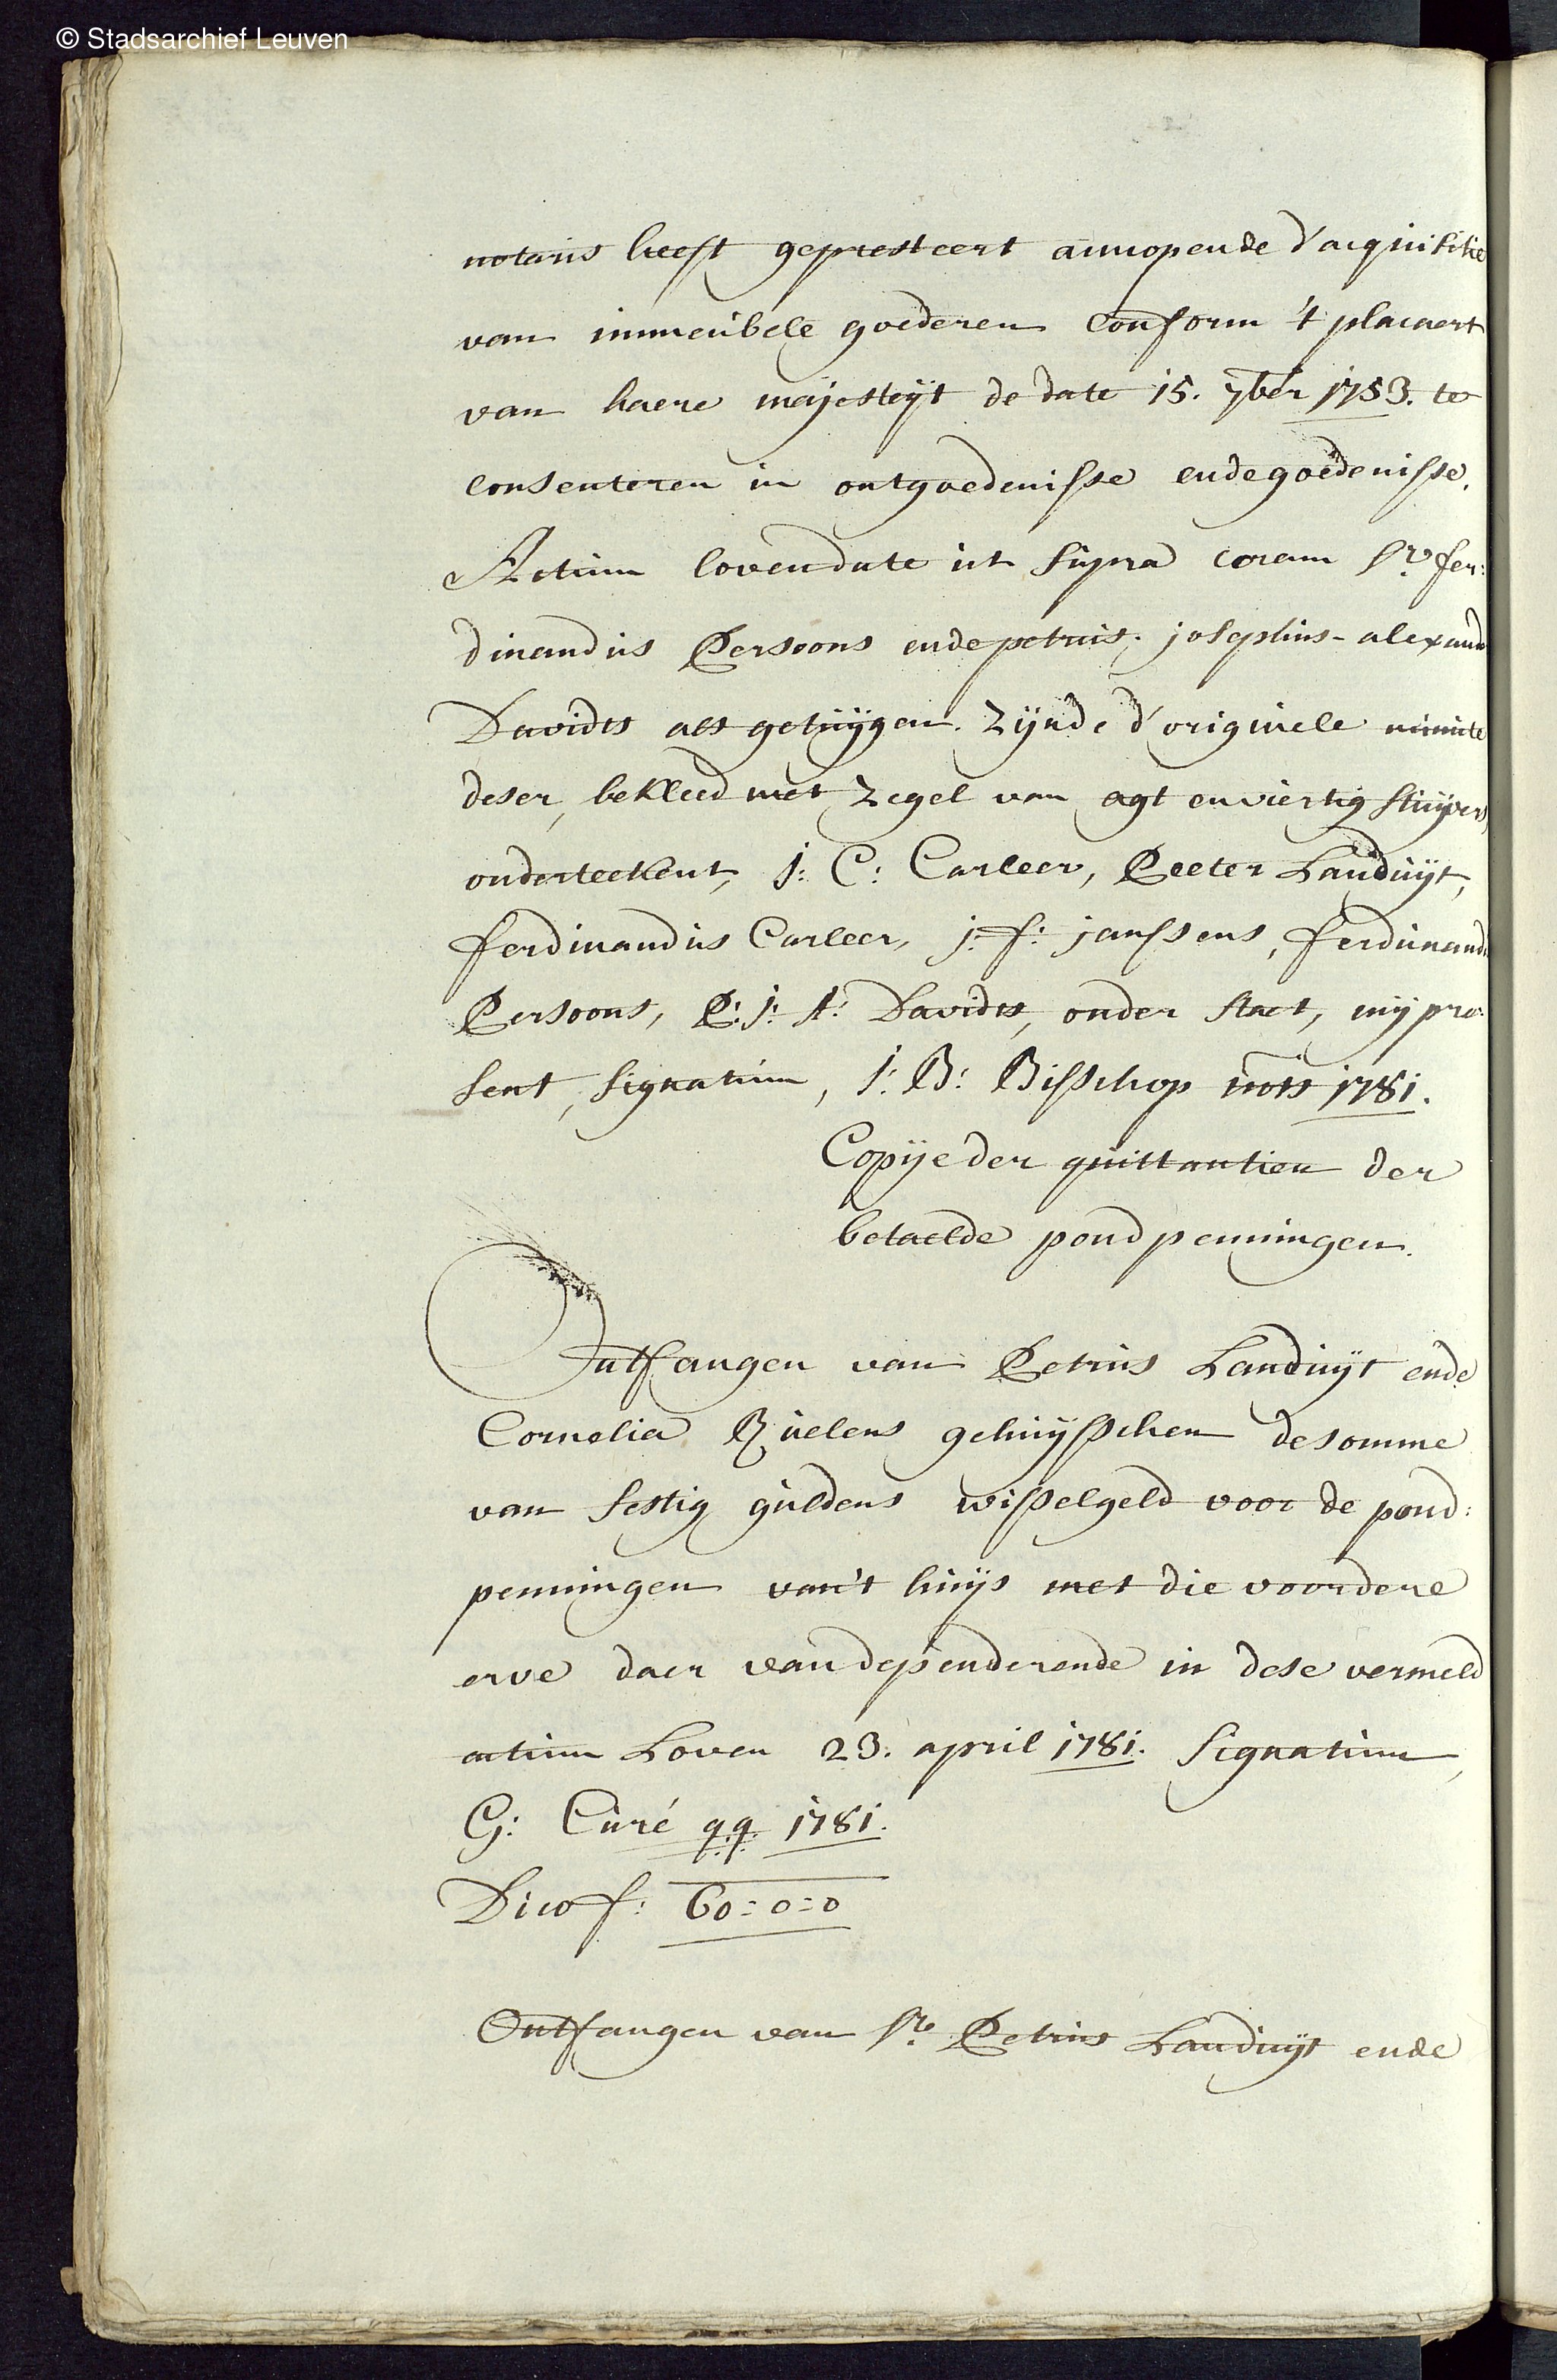 © Stadsarchief Leuven
notaris heeft gepresteert aennopende d'acquisitie
van immeubele goederen conform 't placaert
van haere majesteyt de date 15. 7ber 1753. te
consenteren in ontgoedenisse ende goedenisse.
Actum loven date ut supra coram Sr. fer:
dinandus Persoons ende petrus, josephus-alexand
Davidts als getuygen. Zynde d'originele minute
deser, bekleed met Zegel van agt en viertig stuyvers
onderteekent, j: C: Carleer, Peeter Landuyt,
ferdinandus Carleer, j: f: janssens, ferdinand
Persoons, P: j: A: Davidts, onder staet, my pre:
sent, signatum, J: B: Bisschop nots 1781.
Copye der quittantien der
betaelde pondpenningen.
Ontfangen van Petrus Landuyt ende
Cornelia Ruelens gehuysschen de somme
van sestig guldens wisselgeld voor de pond:
penningen van't huys met die voordere
erve daer van dependerende in dese vermeld
actum Loven 23. april 1781. signatum,
G: Curé qq. 1781.
Dico f: 60=0=0
Ontfangen van Sr. Petrus Landuyt ende